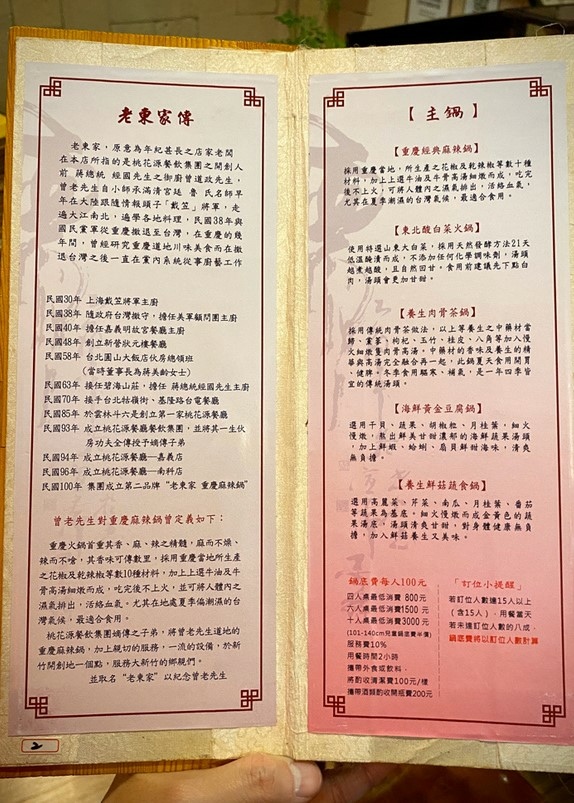 老東家傳
老東家，原意為年紀甚長之店家老闆
在本店所指的是桃花源餐飲集團之開創人
前 蔣總統 經國先生之御廚曾道政先生，
曾老先生自小師承滿清宮廷 魯 氏名師早
年在大陸跟隨情報頭子「戴笠」將軍，走
遍大江南北，遍學各地料理，民國38年與
國民黨軍從重慶撤退至台灣，在重慶的幾
年間，曾經研究重慶道地川味美食而在撤
退台灣之後一直在黨內系統從事廚藝工作
民國30年 上海戴笠將軍主廚
民國38年 隨政府台灣撤守，擔任美軍顧問團主廚
民國40年 擔任嘉義明故宮餐廳主廚
民國48年 創立新營狀元樓餐廳
民國58年 台北圓山大飯店伙房總領班
（當時董事長為蔣美齡女士）
民國63年 接任碧海山莊，擔任 蔣總統經國先生主廚
民國70年 接手台北牯嶺街、基隆路台電餐廳
民國85年 於雲林斗六是創立第一家桃花源餐廳
民國93年 成立桃花源餐廳餐飲集團，並將其一生伙
房功夫全傳授予嫡傳子弟
民國94年 成立桃花源餐廳—嘉義店
民國96年 成立桃花源餐廳—南科店
民國100年 集團成立第二品牌“老東家 重慶麻辣鍋”
曾老先生對重慶麻辣鍋曾定義如下：
重慶火鍋首重其香、麻、辣之精髓，麻而不燥、
辣而不嗆，其香味可傳數里，採用重慶當地所生產
之花椒及乾辣椒等數10種材料，加上上選牛油及牛
骨高湯細燉而成，吃完後不上火，並可將人體內之
濕氣排出，活絡血氣。尤其在地處夏季偏潮濕的台
灣氣候，最適合食用。
桃花源餐飲集團嫡傳之子弟，將曾老先生道地的
重慶麻辣鍋，加上親切的服務，一流的設備，於新
竹開創地一個點，服務大新竹的鄉親們。
並取名“老東家”以紀念曾老先生
【主鍋】
【重慶經典麻辣鍋】
採用重慶當地，所生產之花椒及乾辣椒等數十種
材料，加上上選牛油及牛骨高湯細燉而成，吃完
後不上火，可將人體內之濕氣排出，活絡血氣，
尤其在夏季潮濕的台灣氣候，最適合食用。
【東北酸白菜火鍋】
使用特選山東大白菜，採用天然發酵方法21天
低溫醃漬而成，不添加任何化學調味劑，湯頭
越煮越酸，且自然回甘。食用前建議先下點白
肉，湯頭會更加甘甜。
【養生肉骨茶鍋】
採用傳統肉骨茶做法，以上等養生之中藥材當
歸、黨蔘、枸杞、玉竹、桂皮、八角等加入慢
火細燉隻肉骨高湯，中藥材的香味及養生的精
華與高湯完全融合再一起，此鍋夏天食用開胃
、健脾。冬季食用驅寒、補氣，是一年四季皆
宜的傳統湯頭。
【海鮮黃金豆腐鍋】
選用干貝、蔬果、胡椒粒、月桂葉，細火
慢燉，熬出鮮美甘甜濃郁的海鮮蔬果湯頭
，加上鮮蝦、蛤蜊、扇貝鮮甜海味，清爽
無負擔。
【養生鮮菇蔬食鍋】
選用高麗菜、芹菜、南瓜、月桂葉、番茄
等蔬果為基底。細火慢燉而成金黃色的蔬
果湯底，湯頭清爽甘甜，對身體健康無負
擔，加入鮮菇養生又美味。
鍋底費每人100元
四人桌最低消費 800元
六人桌最低消費1500 元
十人桌最低消費3000元
(101-140cm兒童鍋底費半價)
服務費10%
用餐時間2小時
攜帶外食或飲料，
將酌收清潔費100元/樣
攜帶酒類酌收開瓶費200元
「訂位小提醒」
若訂位人數達15人以上
（含15人），用餐當天
若未達訂位人數的八成，
鍋底費將以訂位人數計算